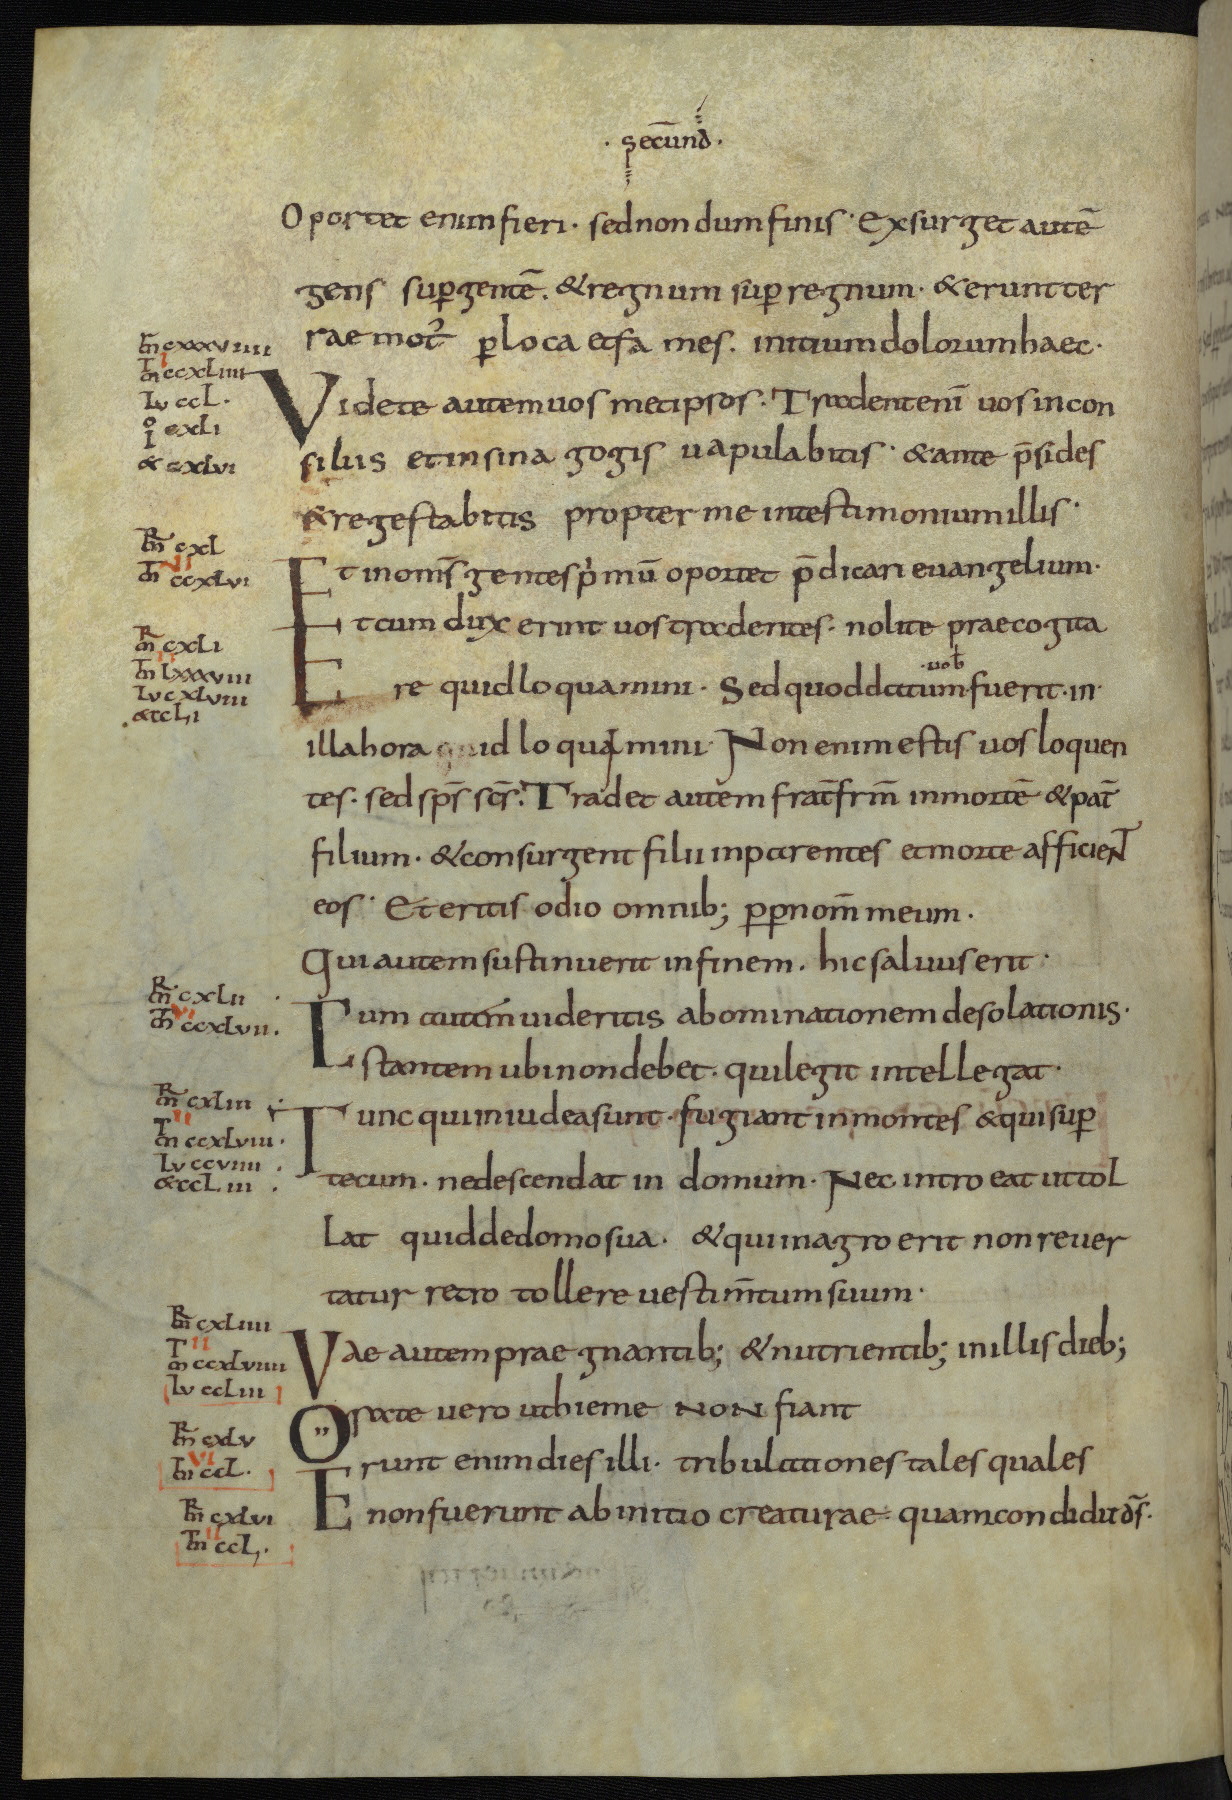 · secūnd ·
Oportet enim fieri · sed non dum finis · Exsurget autē
gens sup̄ gentē · & regnum sup̄ regnum · & erunt ter
rae mot᷒ p̄ loca et fa mes . initium dolorum haec ·
m̄ cxxxviiii
m̄ ccxliiii
lu ccl ·
Io cxli
& cxlvi
Videte autem uos met ipsos · Tradent enī uos in con
siliis et in sina gogis uapulabitis · & ante p̄sides
& reges stabitis propter me in testimonium illis ·
m̄ cxl
vi
m̄ ccxlvi
Et in om̄s gentes p̄mū oportet p̄dicari euangelium ·
m̄ cxli
ii
m̄ lxxxviii
lu cxlviii
& ccli
Et cum dux erint uos tradentes · nolite praecogita
· uob̄
re quid lo quamini · Sed quod datum fuerit · in ·
illa hora quid lo quamini · Non enim estis uos loquen
tes · sed sp̄s sc̄s · Tradet autem frat̄ frm̄ in mortē & pat̄
filium · & consurgent filii in parentes et morte afficieNT
eos · Et eritis odio omnib; pp̄ nom̄ meum ·
Qui autem sustinuerit in finem . hic saluus erit ·
m̄ cxlii ·
vi
m̄ ccxlvii .
Cum autem uideritis abominationem desolationis ·
stantem ubi non debet · qui legit intellegat ·
m̄ cxliii
ii
m̄ ccxlviii ·
lu ccviiii
& ccliii .
Tunc qui in iudea sunt · fugiant in montes & qui sup̄
tecum · ne descendat in domum · Nec intro eat ut tol
lat quid de domo sua · & qui in agro erit non reuer
tatur retro tollere uestim̄tum suum ·
m̄ cxliiii
ii
m̄ ccxlviiii
lu ccliii
Vae autem prae gnantib; & nutrientib; in illis dieb;
m̄ cxlv
vi
m̄ ccl .
Orate uero ut hieme NON fiant
m̄ cxlvi
ii
m̄ ccli .
Erunt enim dies illi · tribulationes tales quales
non fuerunt ab initio creaturae quam condidit d̄s ·